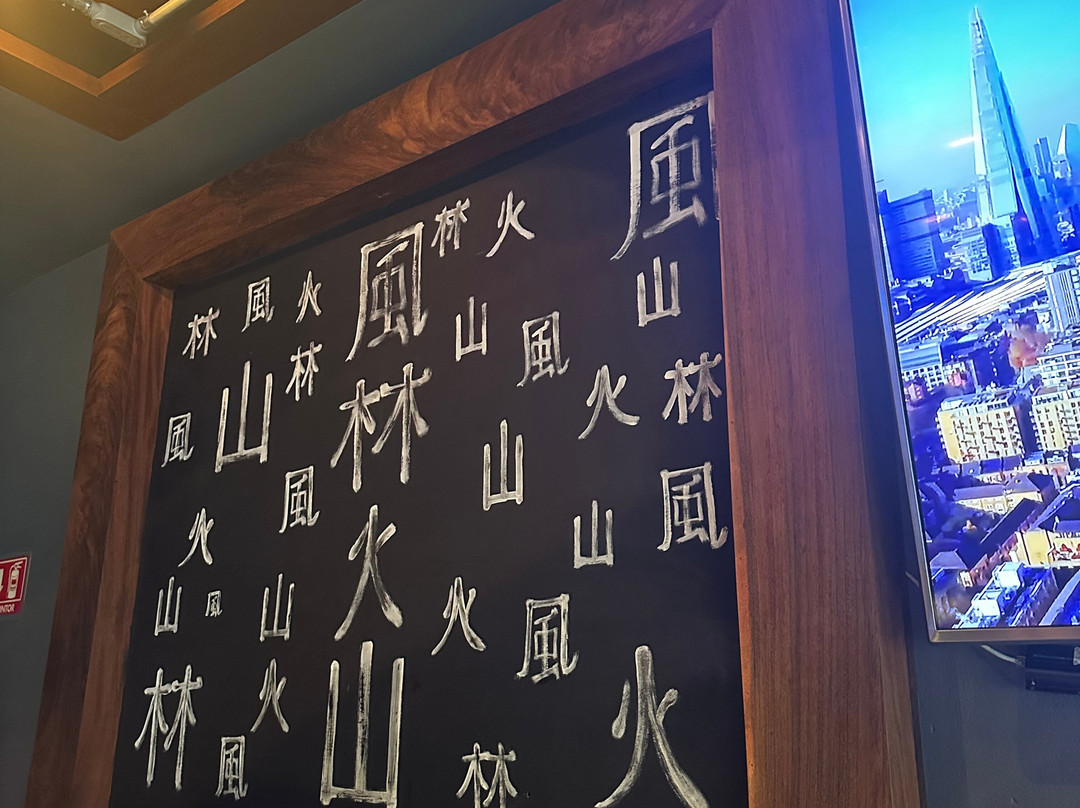 風
林 火
林 風 火 風 山
山 風
林
山 林 火 林
風 山
風 風
火 火 山
山 風 山 火 風
林 火 山 火
風 林